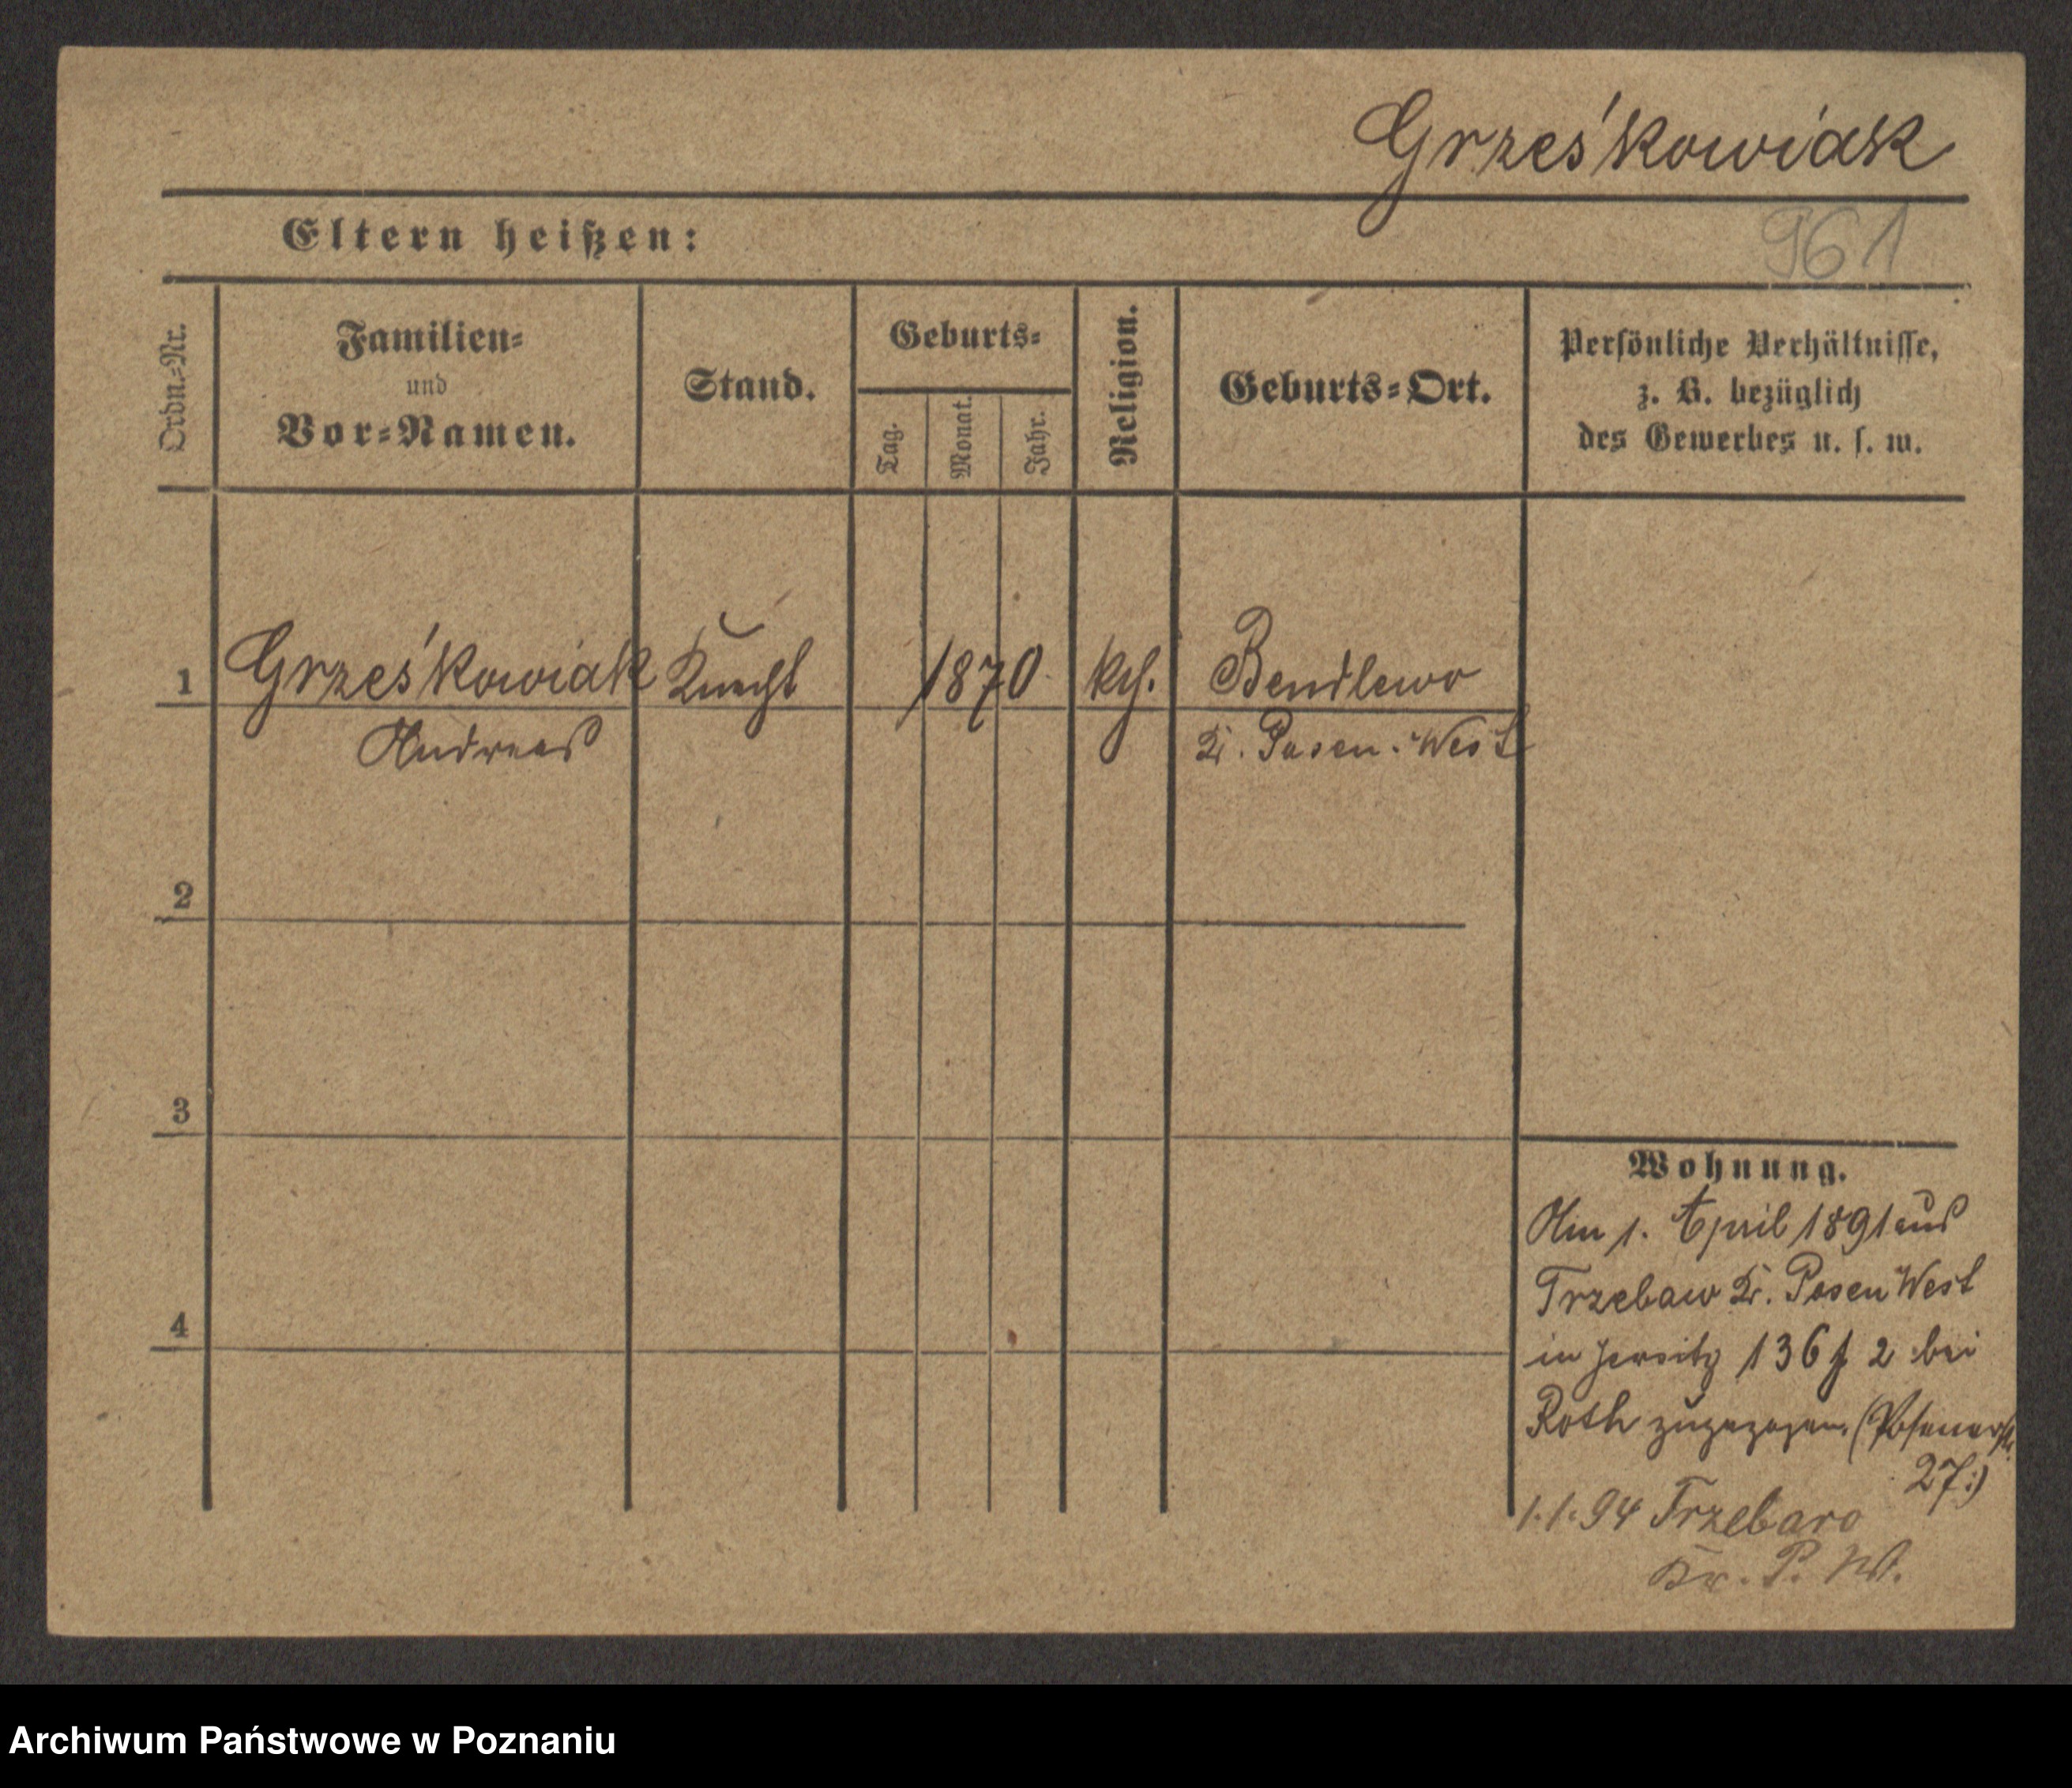 Grześkowiak
961
Eltern heißen:
Ordn.-Nr.
Familien-
und
Vor-Namen.
Stand.
Geburts-
Tag.
Monat.
Jahr.
Religion.
Geburts-Ort.
Persönliche Verhältnisse,
z. B. bezüglich
des Gewerbes u. s. w.
1 Grześkowiak Knecht 1870 kth. Bendlewo
Andreas Kr. Posen-West
2
3
4
Wohnung.
Am 1. April 1891 aus
Trzebaw Kr. Posen West
in Jersitz 136 2 bei
Roth zugezogen. (Posenerstr.
27.)
1.1.94 Trzebaw
Kr. P. W.
Archiwum Państwowe w Poznaniu